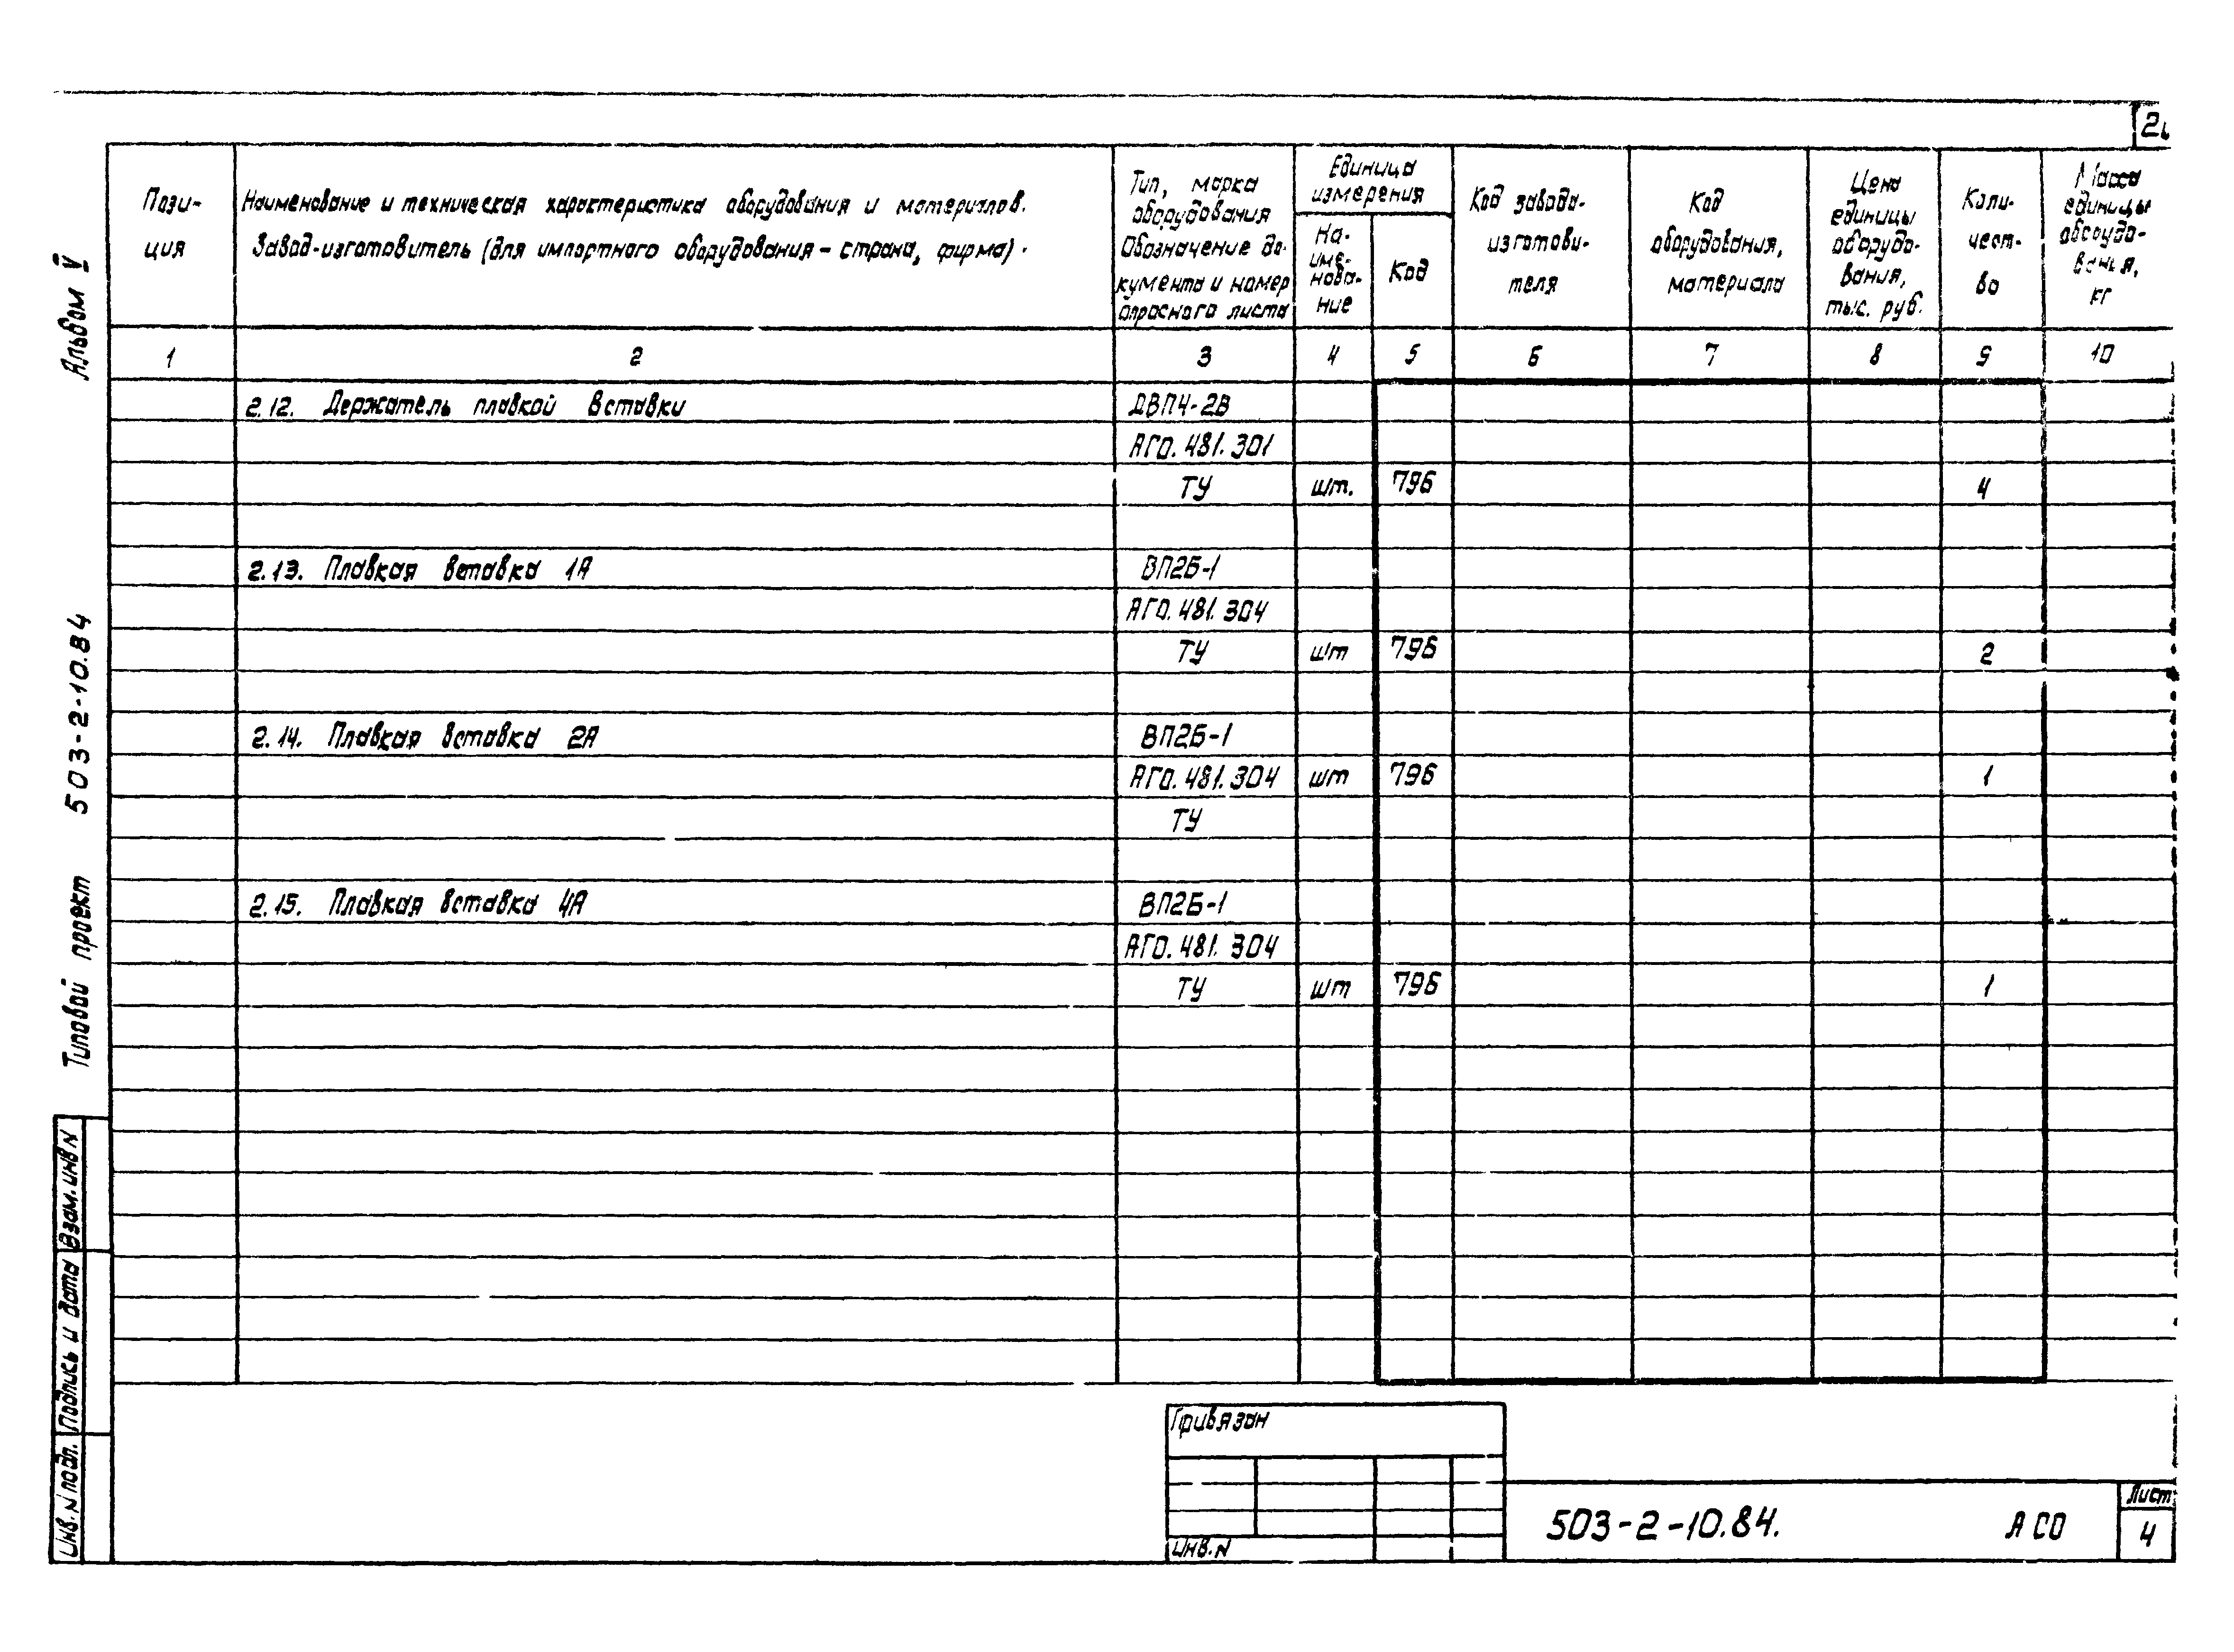 Пози-
ция
Наименование и техническая характеристика оборудования и материалов.
Завод-изготовитель (для импортного оборудования - страна, фирма).
Тип, марка
оборудования
Обозначение до-
кумента и номер
опросного листа
Единица
измерения
На-
име-
нова-
ние
Код
Код завода-
изготови-
теля
Код
оборудования,
материала
Цена
единицы
оборудо-
вания,
тыс. руб.
Коли-
чест-
во
Масса
единицы
оборудо-
вания,
кг
1 2 3 4 5 6 7 8 9 10
2.12. Держатель плавкой вставки ДВП4-2В
АГО.481.301
ТУ шт. 796 4
2.13. Плавкая вставка 1А ВП2Б-1
АГО.481.304
ТУ шт 796 2
2.14. Плавкая вставка 2А ВП2Б-1
АГО.481.304 шт 796 1
ТУ
2.15. Плавкая вставка 4А ВП2Б-1
АГО.481.304
ТУ шт 796 1
Типовой проект 503-2-10.84 Альбом V
Инв.N подл. Подпись и дата Взам.инв N
Привязан
Инв.N
503-2-10.84. АСО
Лист
4